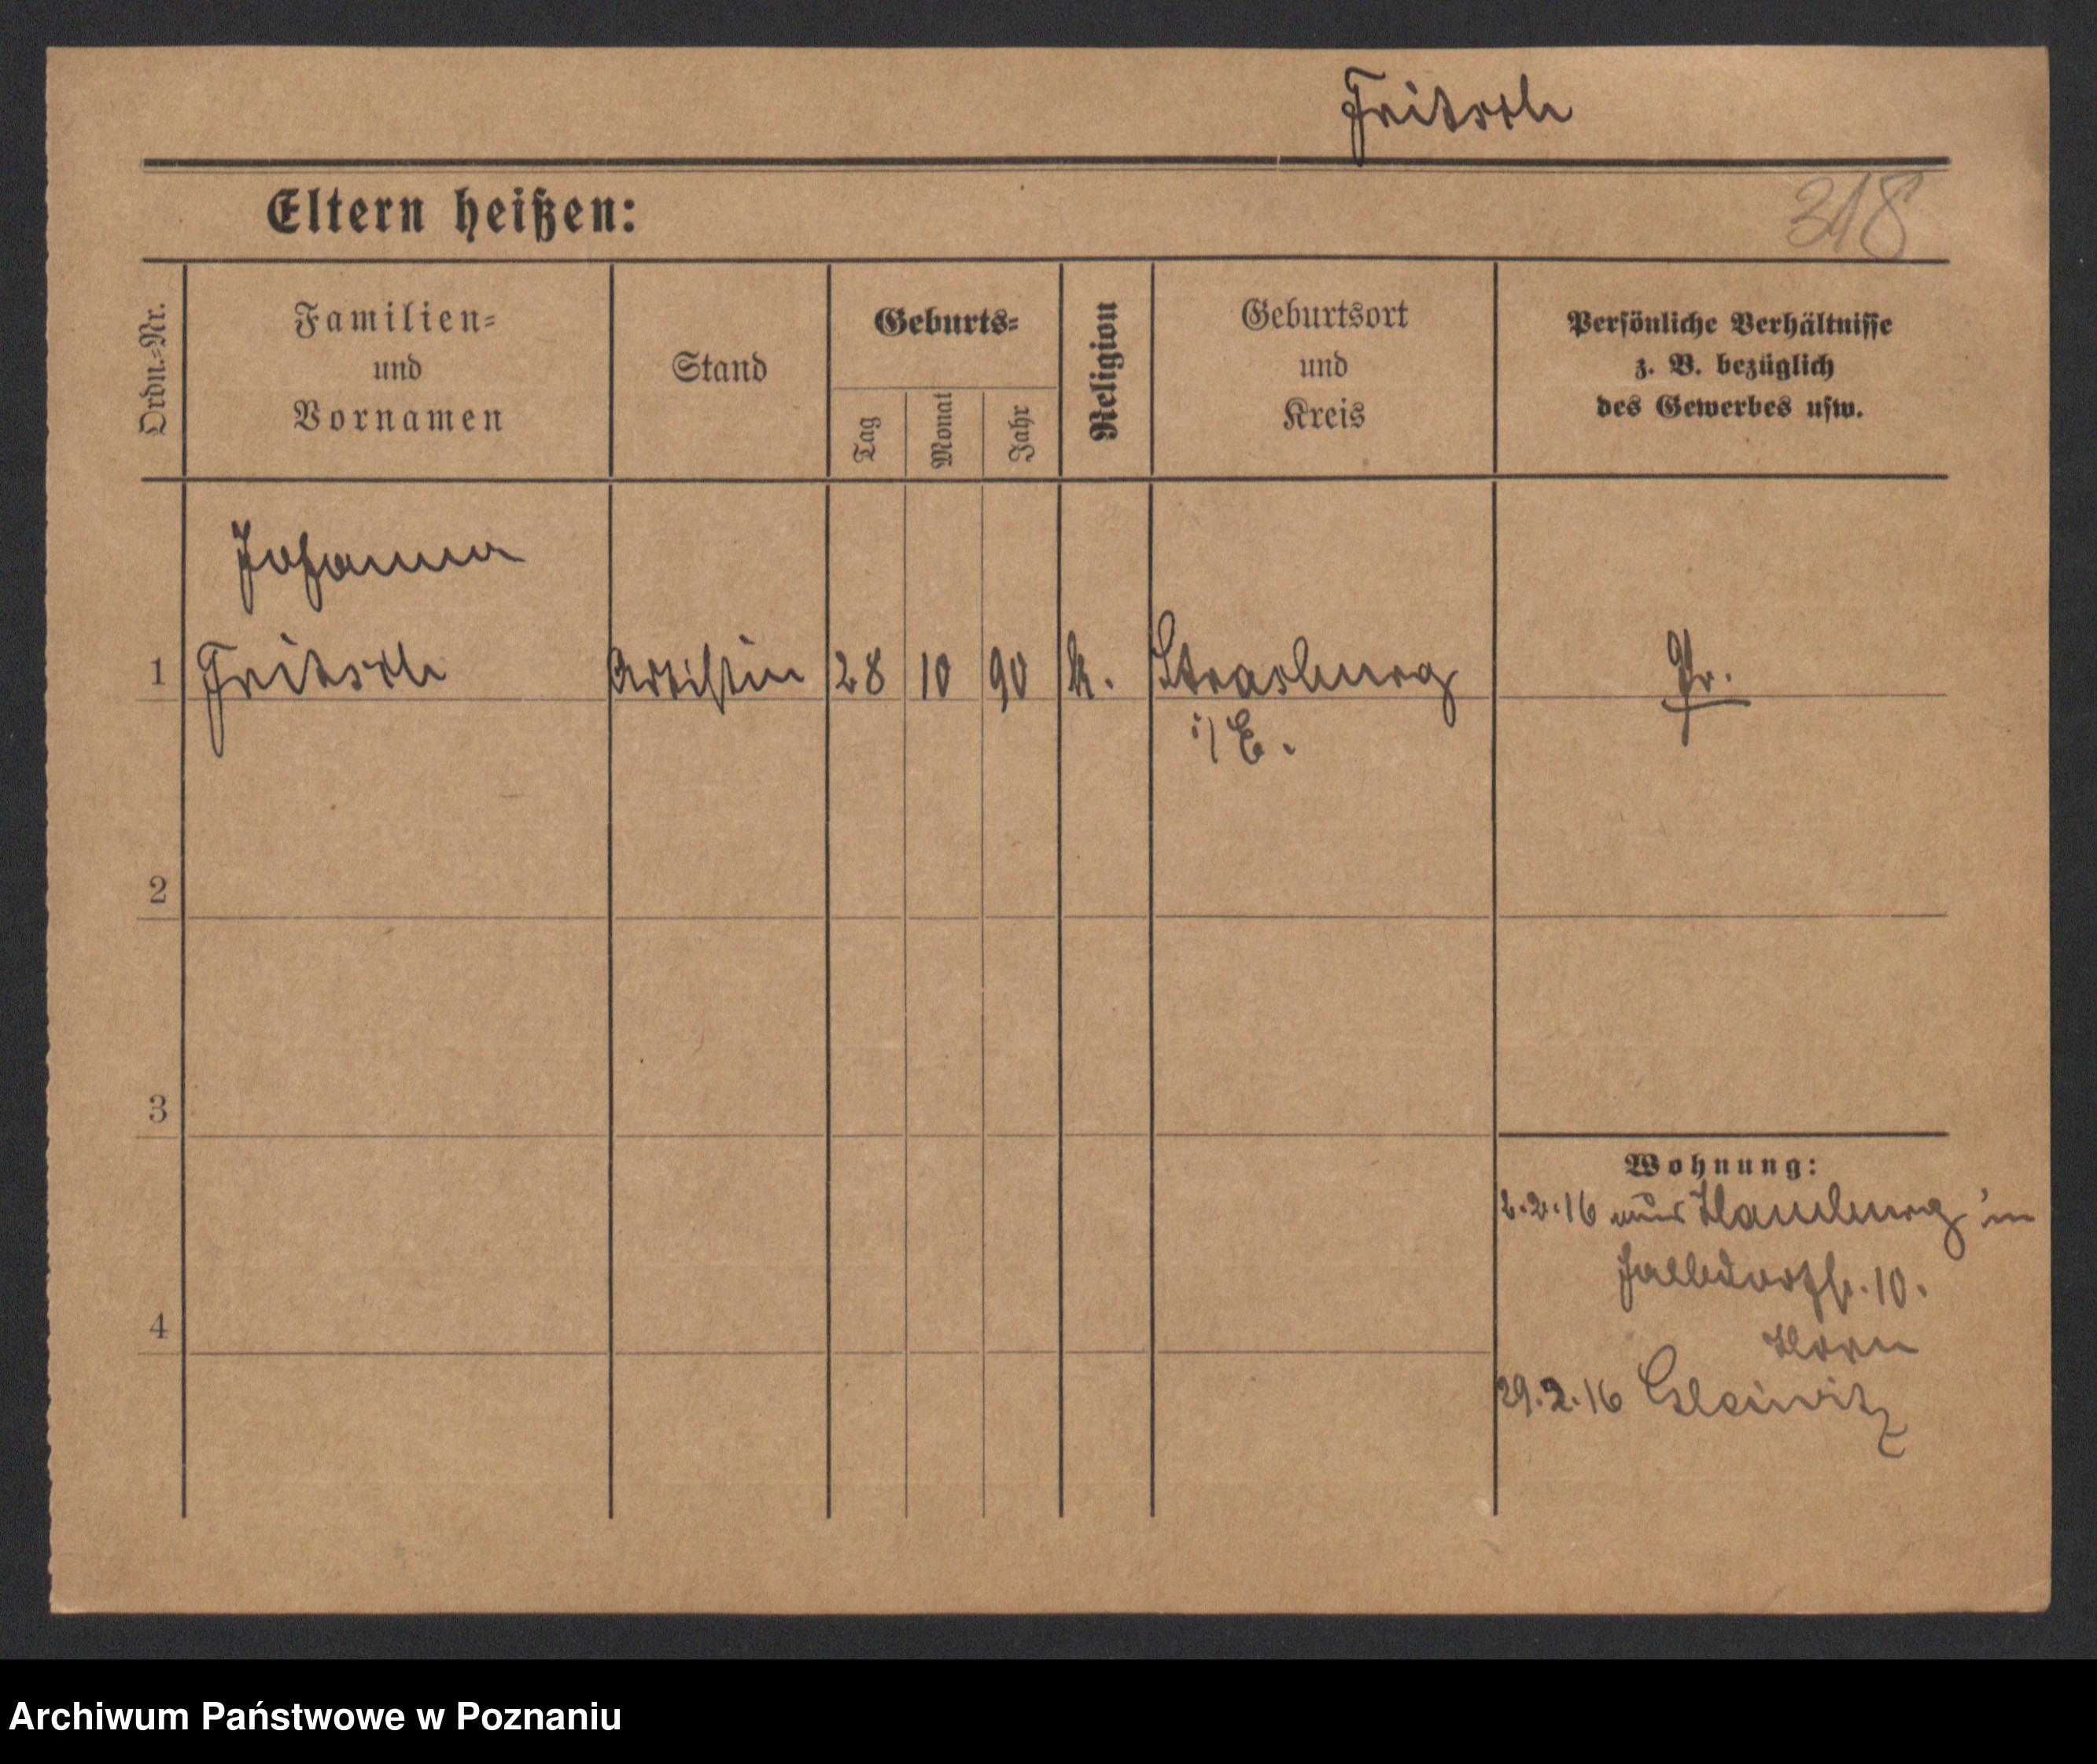 Fritsch
Eltern heißen:
318
Ordn.-Nr.
Familien-
und
Vornamen
Stand
Geburts-
Tag
Monat
Jahr
Religion
Geburtsort
und
Kreis
Persönliche Verhältnisse
z. B. bezüglich
des Gewerbes usw.
Johanna
1 Fritsch Artistin 28 10 90 k. Strasburg Pr.
i/E.
2
3
Wohnung:
2.2.16 aus Hamburg in
10.
4
Horn
29.2.16 Gleiwitz
Archiwum Państwowe w Poznaniu